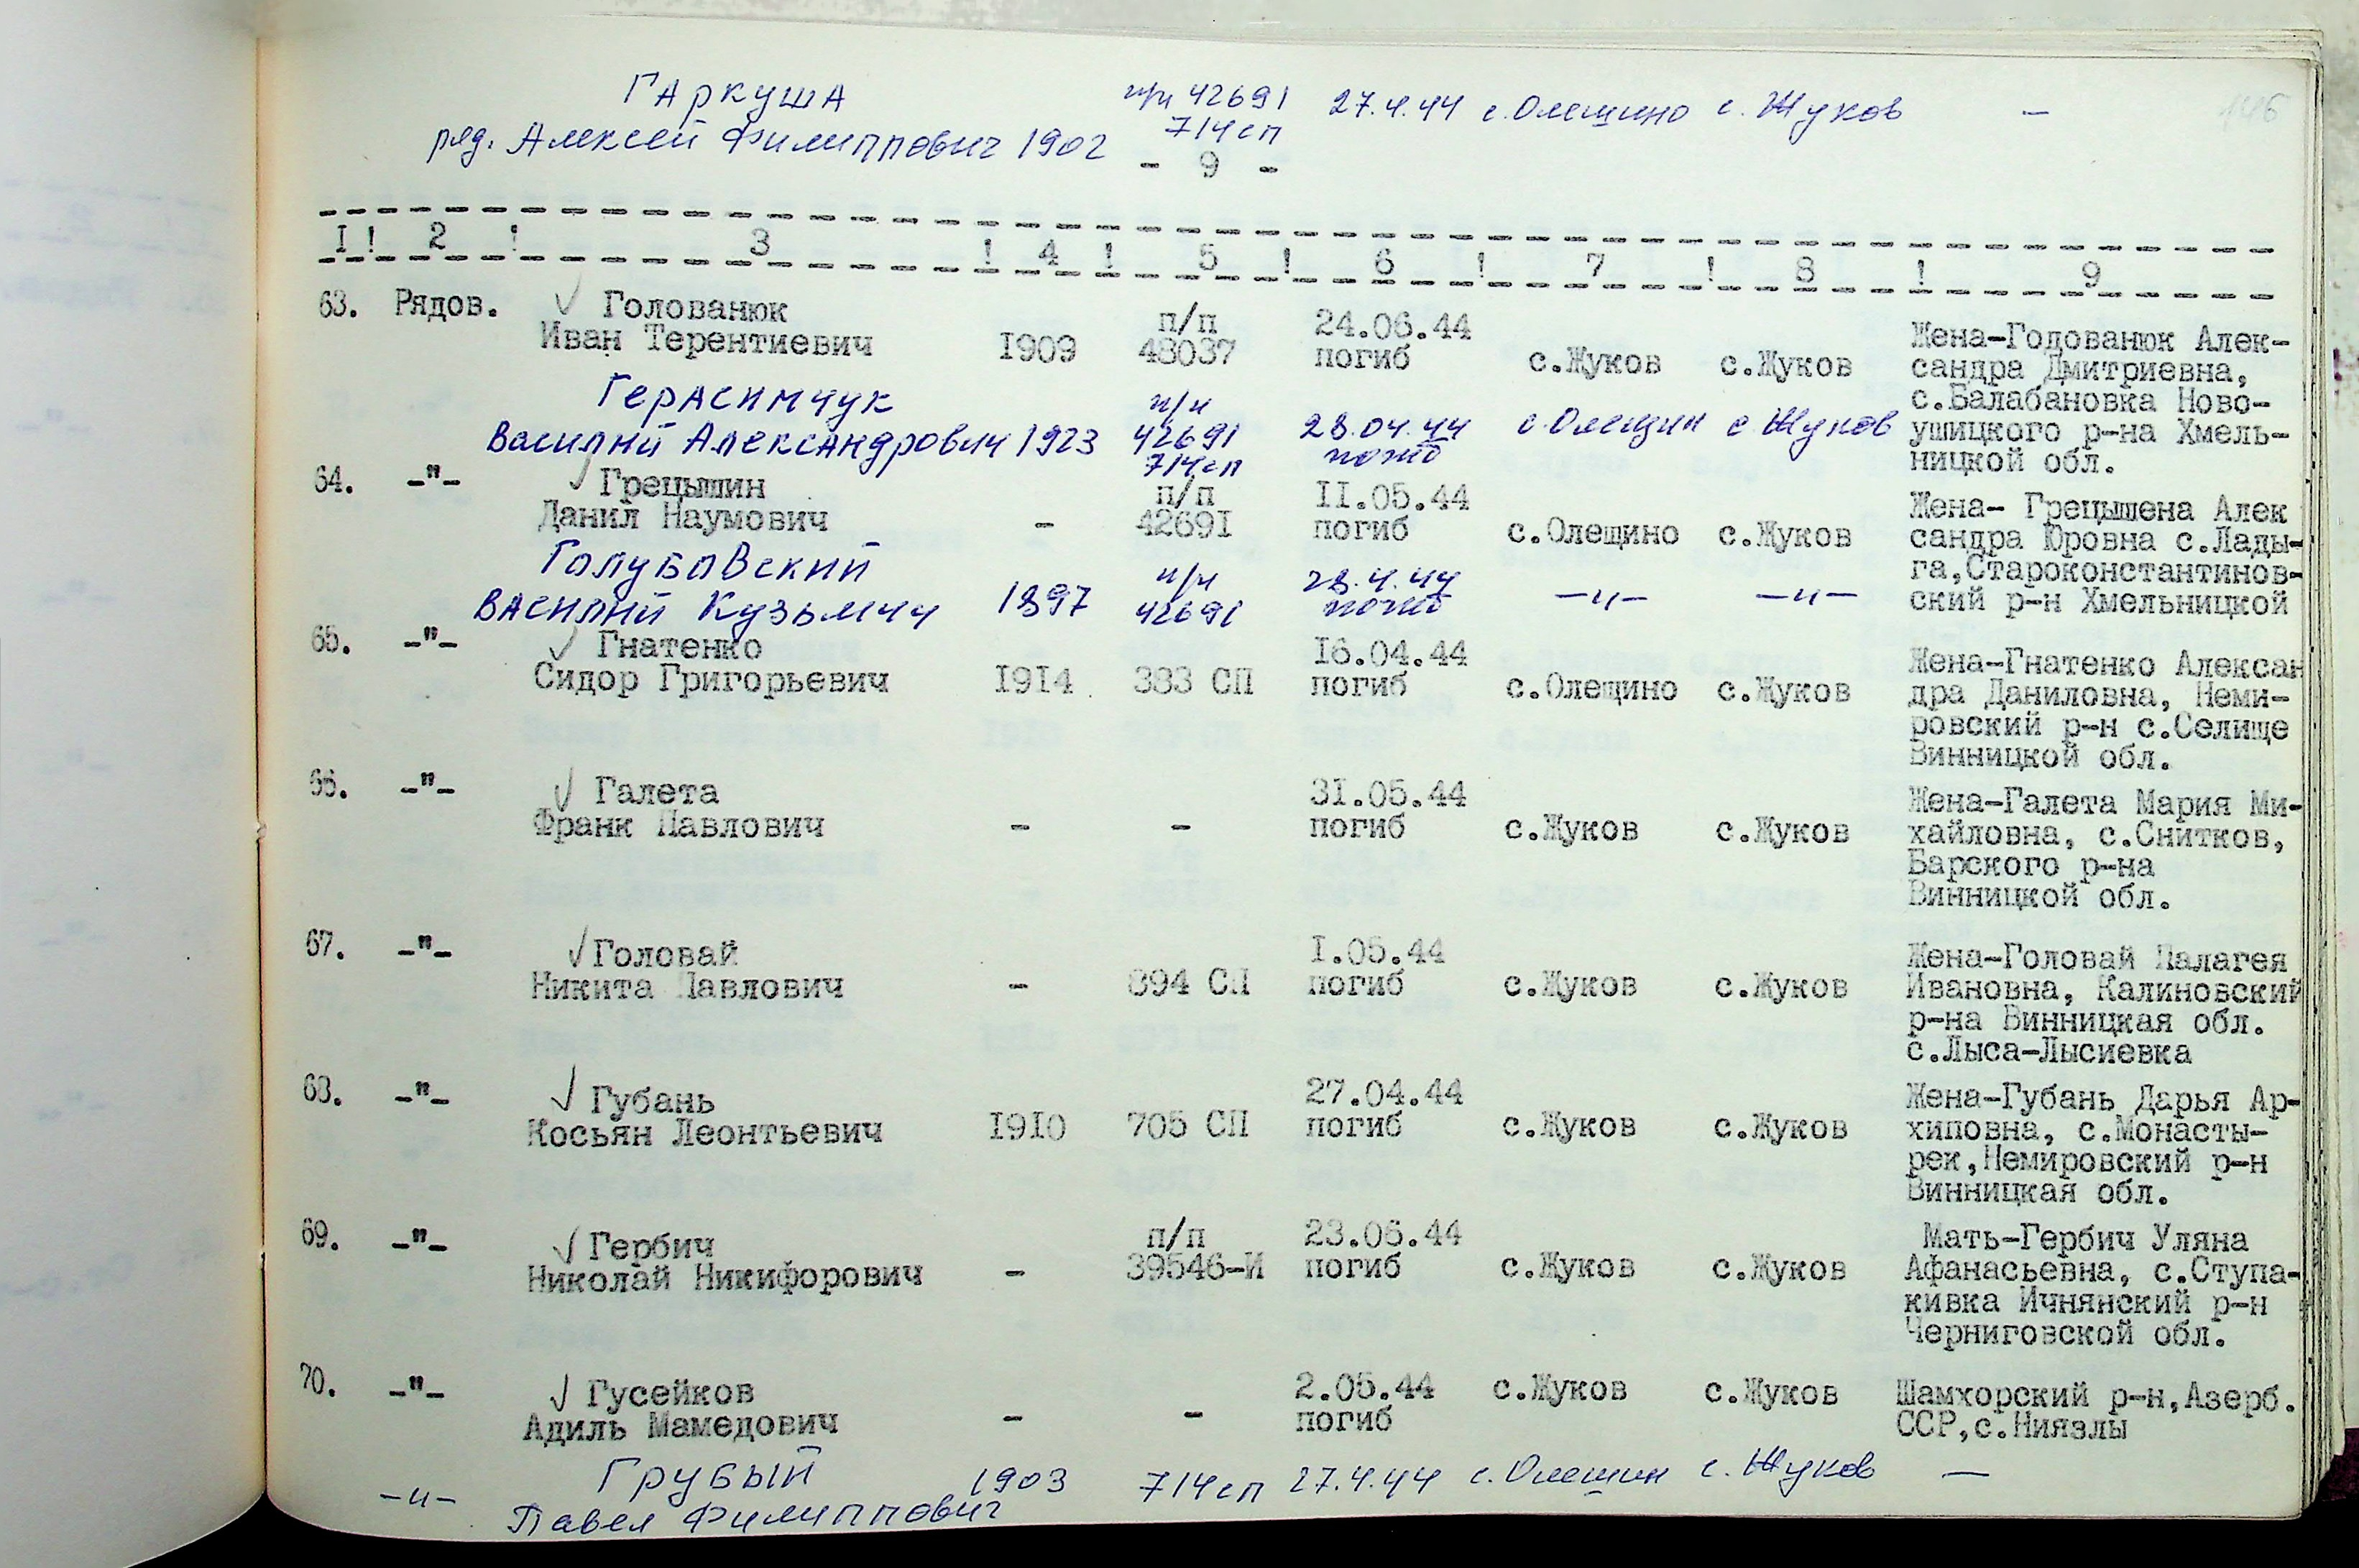 ГАРКУША п/п 42691 27.4.44 с.Олещино с.Жуков – 146
ряд. Алексей Филиппович 1902 714сп
- 9 -
I ! 2 ! 3 ! 4 ! 5 ! 6 ! 7 ! 8 ! 9
63. Рядов. Голованюк п/п 24.06.44 Жена-Годованюк Алек-
Иван Терентиевич I909 48037 погиб с.Жуков с.Жуков сандра Дмитриевна,
с.Балабановка Ново-
Герасимчук п/п
Василий Александрович 1923 42691 28.04.44 с.Олещин с.Жуков ушицкого р-на Хмель-
714сп погиб ницкой обл.
64. -"- Грецышин п/п II.05.44 Жена- Грецышена Алек
Данил Наумович - 4269I погиб с.Олещино с.Жуков сандра Юровна с.Лады-
Голубовский п/п 28.4.44 га,Староконстантинов-
Василий Кузьмич 1897 42691 погиб -"- -"- ский р-н Хмельницкой
65. -"- Гнатенко I6.04.44 Жена-Гнатенко Алексан
Сидор Григорьевич I9I4 383 СП погиб с.Олещино с.Жуков дра Даниловна, Неми-
ровский р-н с.Селище
Винницкой обл.
66. -"- Галета 3I.05.44 Жена-Галета Мария Ми-
Франк Павлович - - погиб с.Жуков с.Жуков хайловна, с.Снитков,
Барского р-на
Винницкой обл.
67. -"- Головай I.05.44 Жена-Головай Палагея
Никита Павлович - 894 СП погиб с.Жуков с.Жуков Ивановна, Калиновский
р-на Винницкая обл.
с.Лыса-Лысиевка
68. -"- Губань 27.04.44 Жена-Губань Дарья Ар-
Косьян Леонтьевич I9I0 705 СП погиб с.Жуков с.Жуков хиповна, с.Монасты-
рек,Немировский р-н
Винницкая обл.
69. -"- Гербич п/п 23.06.44 Мать-Гербич Уляна
Николай Никифорович - 39546-И погиб с.Жуков с.Жуков Афанасьевна, с.Ступа-
кивка Ичнянский р-н
Черниговской обл.
70. -"- Гусейков 2.05.44 с.Жуков с.Жуков Шамхорский р-н,Азерб.
Адиль Мамедович - - погиб ССР,с.Ниязлы
-"- Грубый 1903 714сп 27.4.44 с.Олещин с.Жуков –
Павел Филиппович